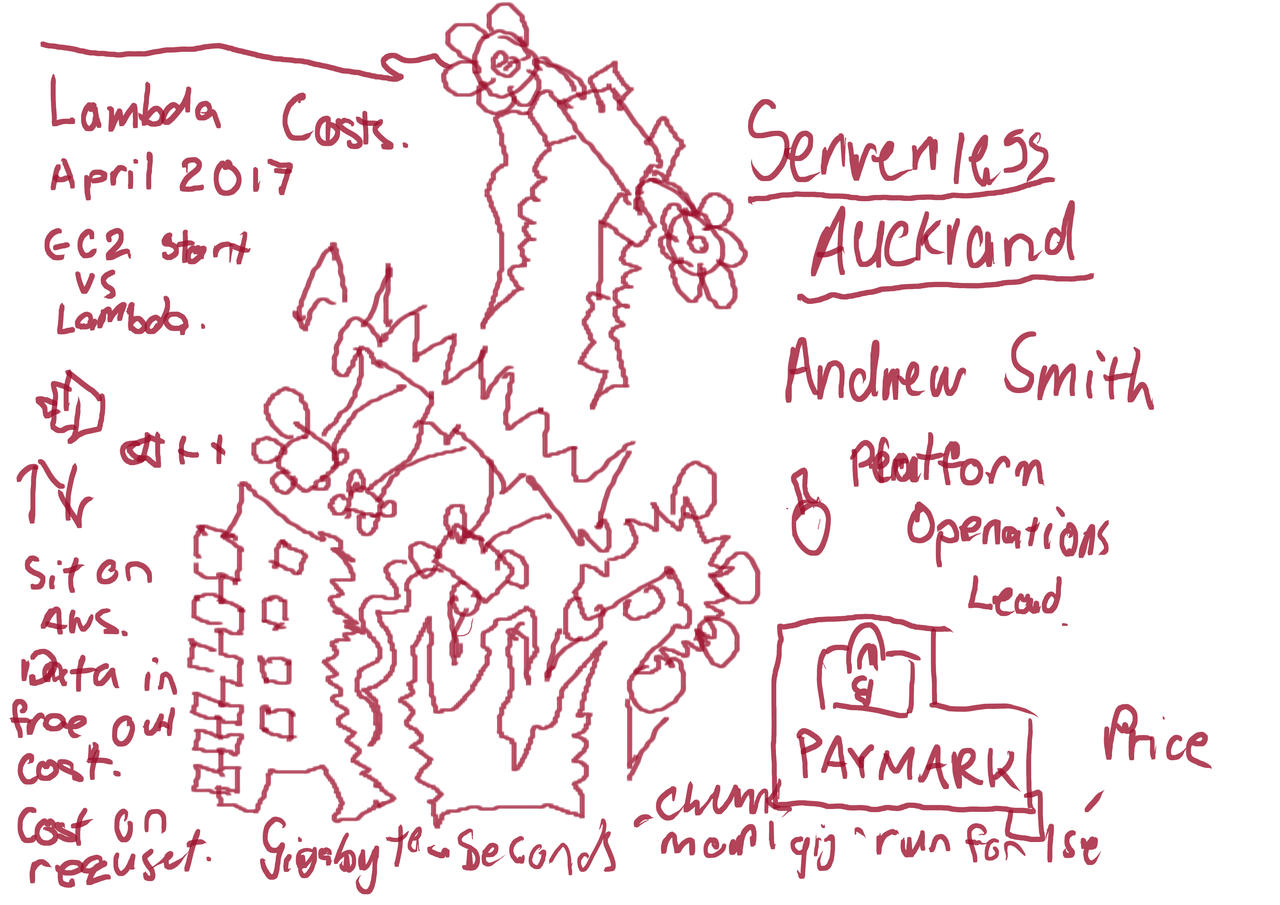 Lambda Costs.
April 2017
EC2 start
vs
Lambda.
C++
Sit on
AWS.
Data in
free out
cost.
Cost on
requset.
Gigabyte-Seconds
Serverless
Auckland
Andrew Smith
Platform
Operations
Lead
PAYMARK
Price
gig run for 1se